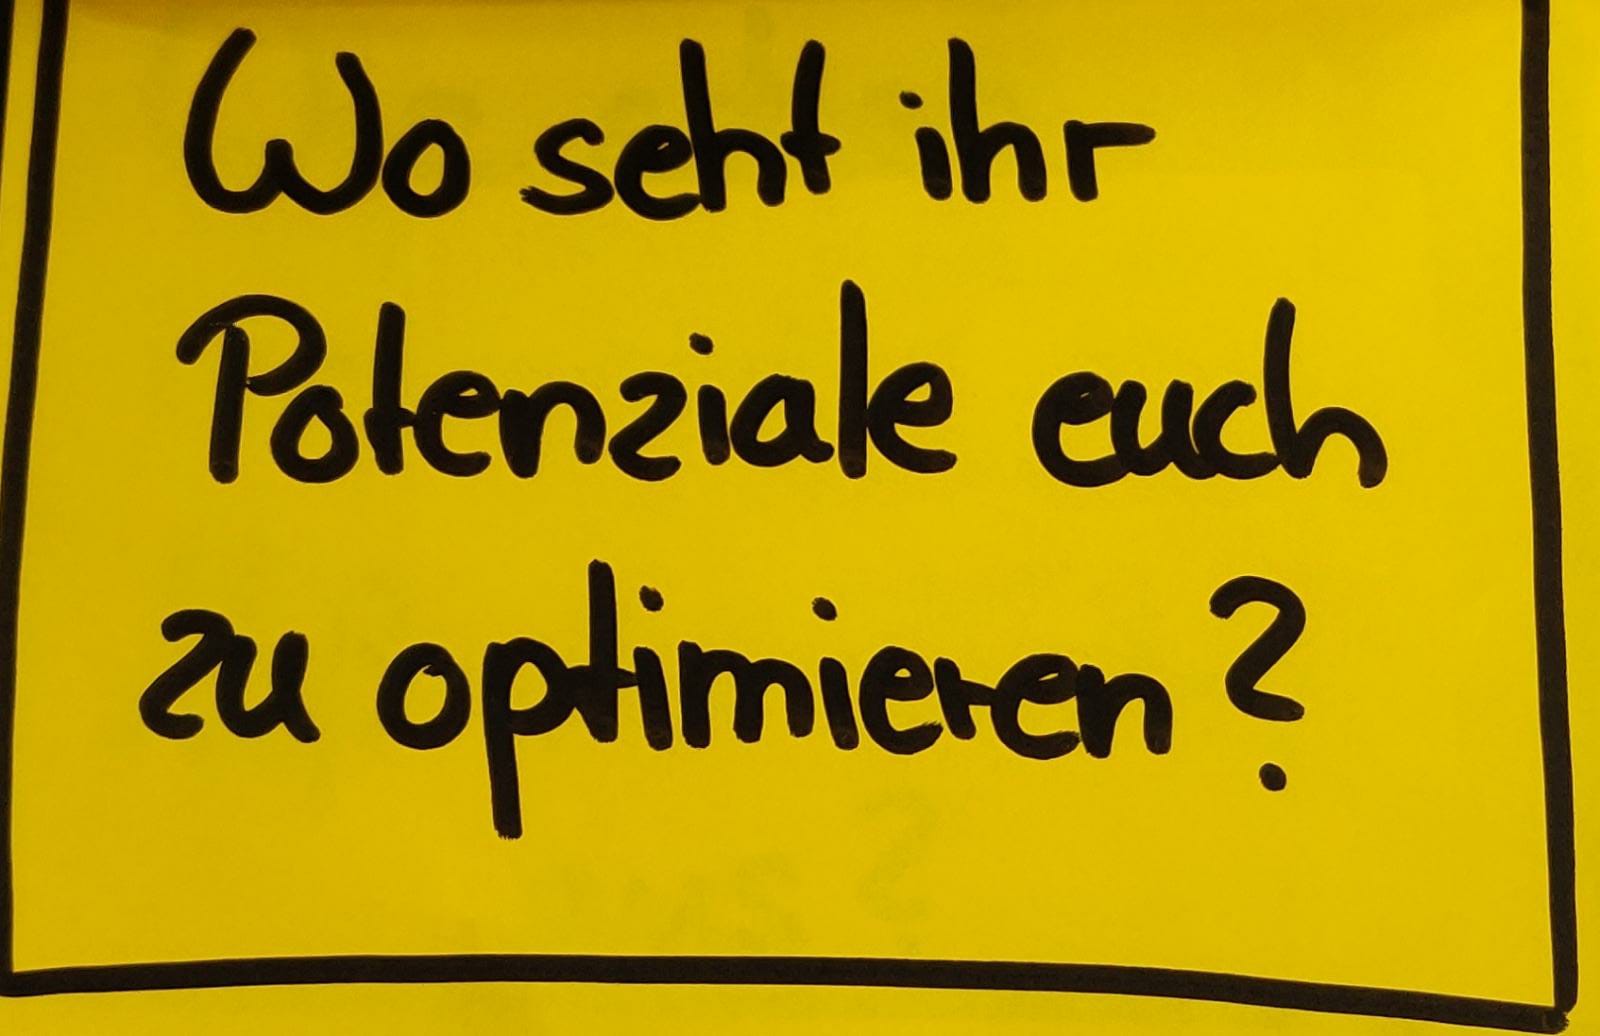 Wo seht ihr
Potenziale euch
zu optimieren?